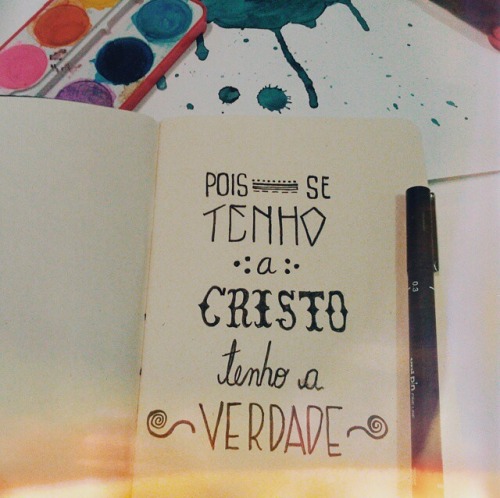 POIS SE
TENHO
a
CRISTO
tenho a
VERDADE
0.3